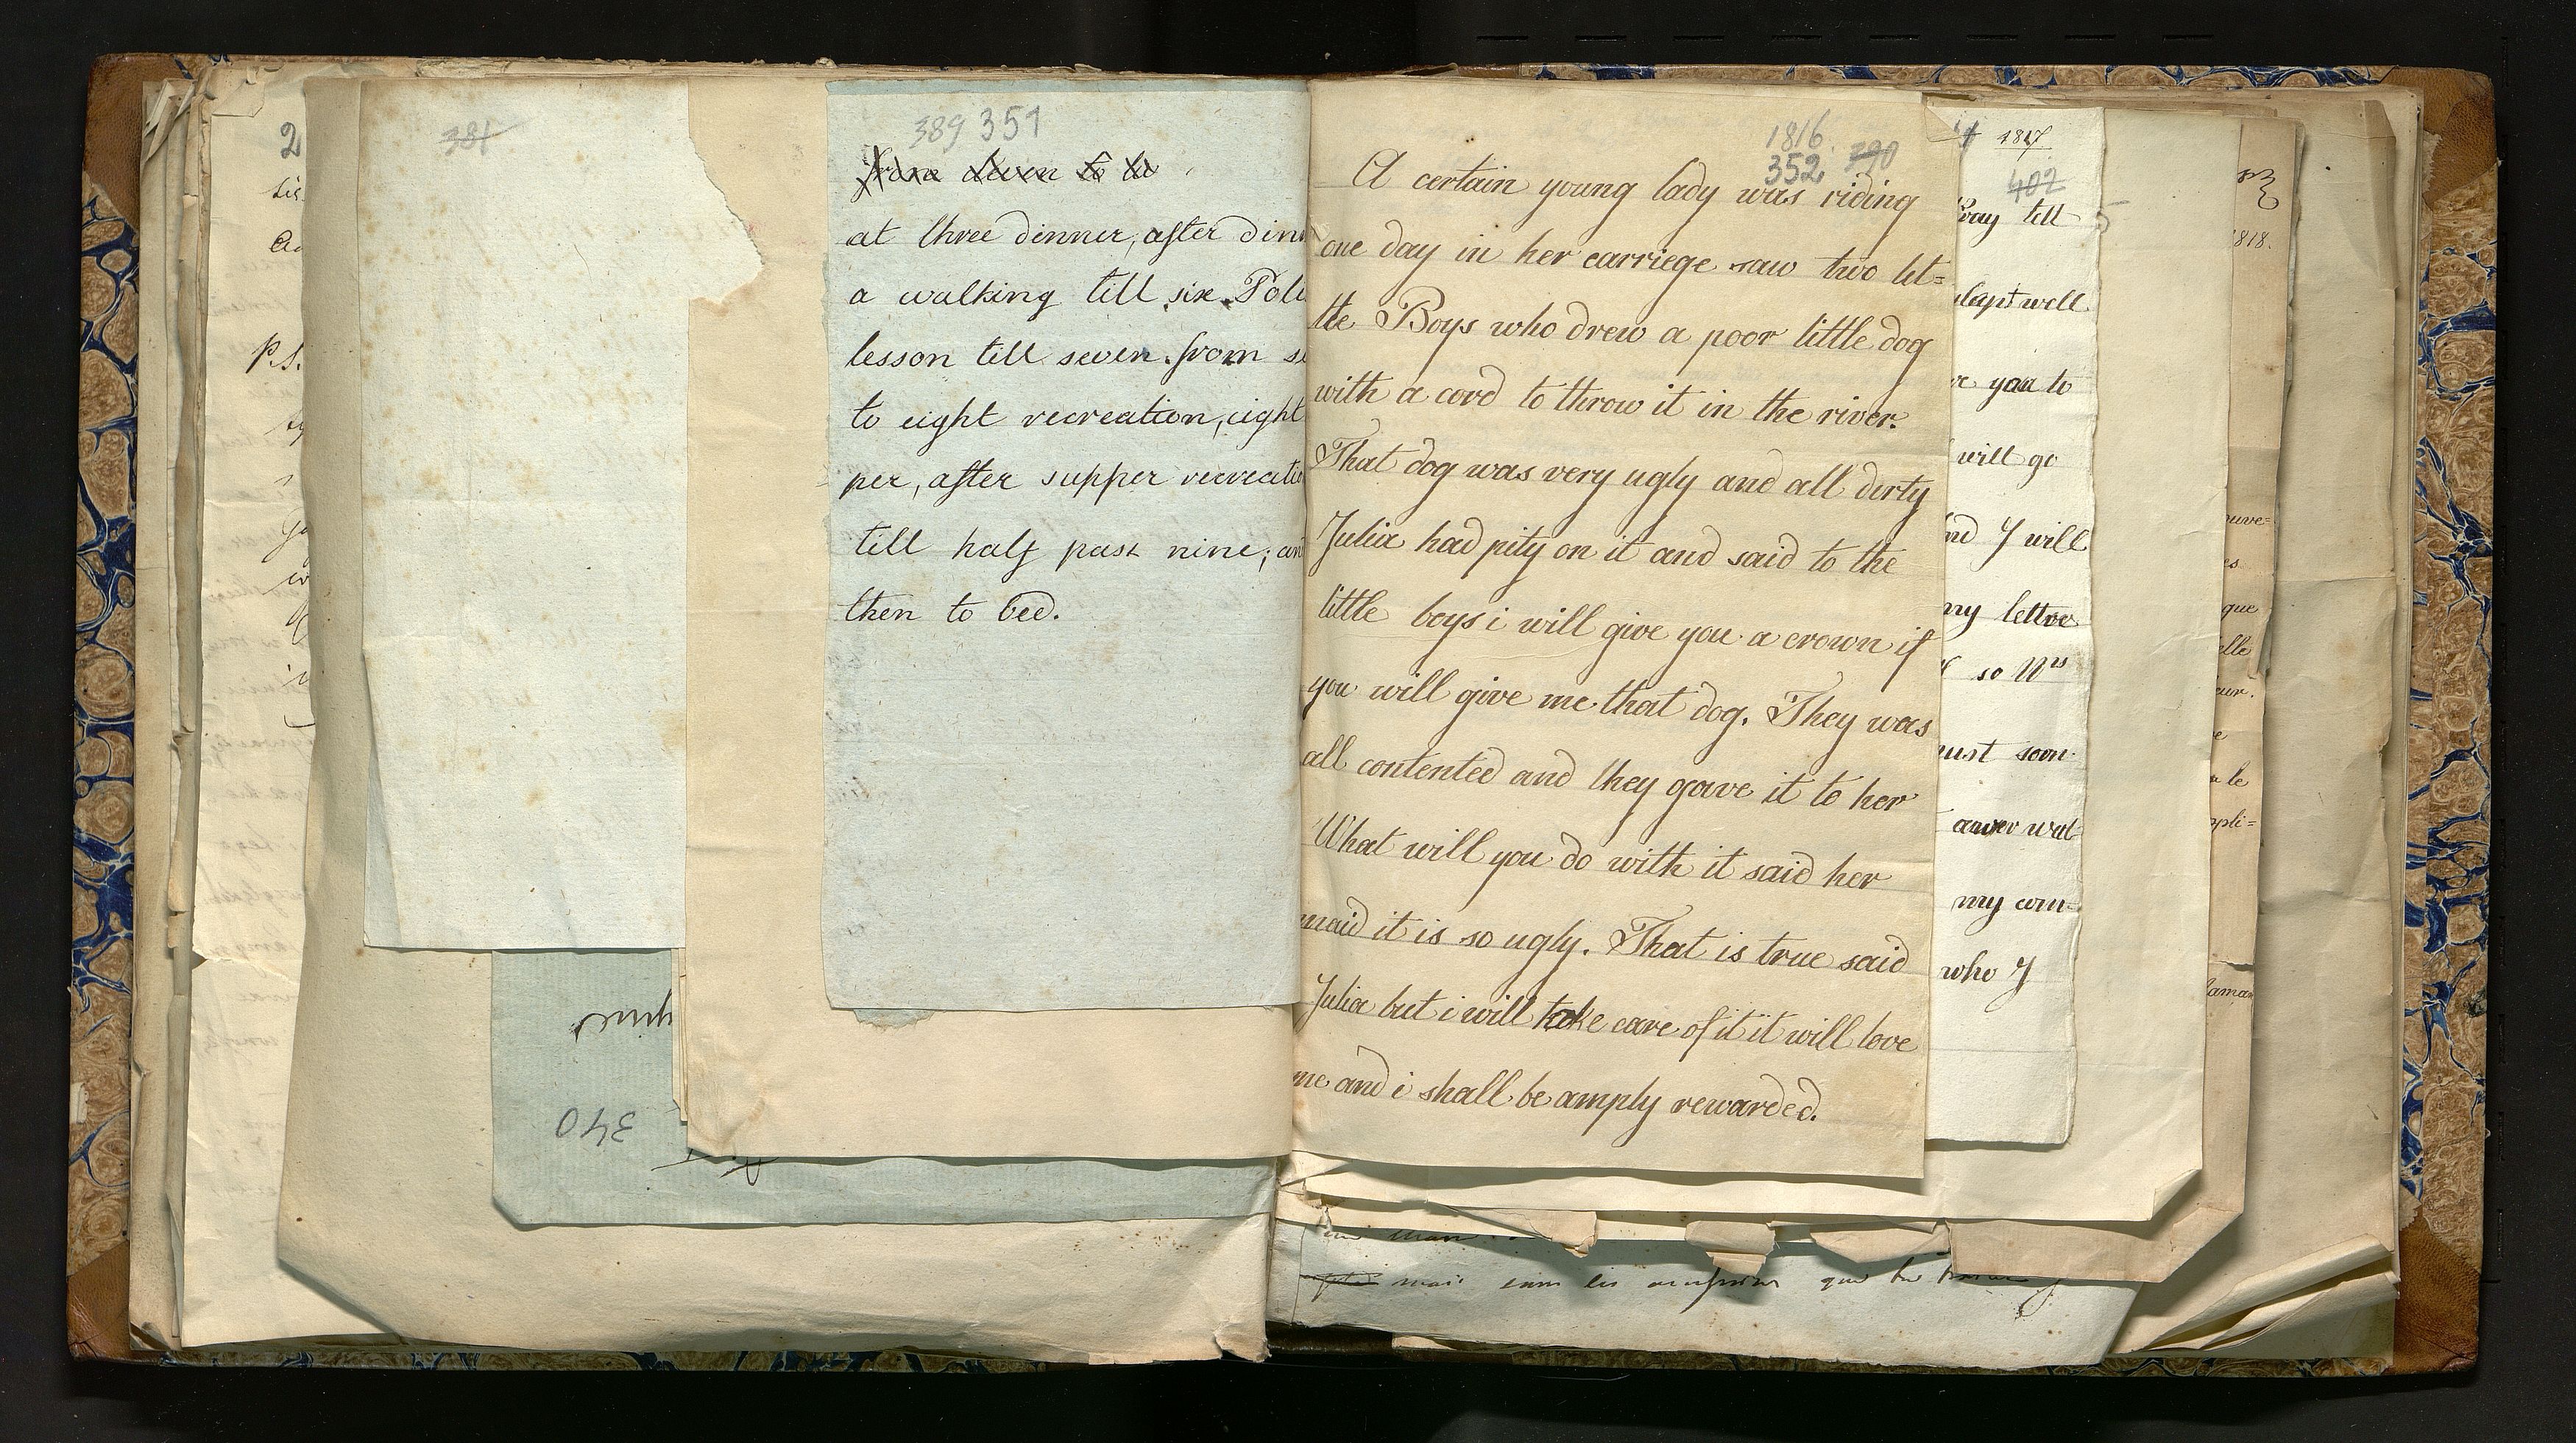 381
389 351
from eleven to
at three dinner, after dinn
a walking till six. Poli
lesson till seven. from se
to eight recreation, eight
per, after supper recreatio
till half past nine; an
then to bed.
340
1816.
352 390
A certain young lady was riding
one day in her carriege saw two lit=
tle Boys who drew a poor little dog
with a cord to throw it in the river.
That dog was very ugly and all dirty
Julia had pity on it and said to the
little boys i will give you a crown if
you will give me that dog. They was
all contented and they gave it to her
What will you do with it said her
maid it is so ugly. That is true said
Julia but i will take care of it it will love
me and i shall be amply rewarded.
1817
402
Pray tell
slept well
you to
will go
and I will
my letter
so Mrs
must soon
my com=
who I
1818.
2
P.S.